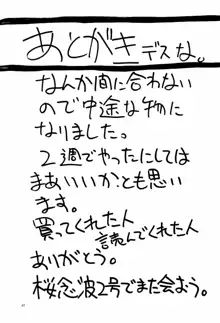 あとがきデスな。
なんか間に合わない
ので中途な物に
なりました。
2週でやったにしては
まあいいかとも思い
ます。
買ってくれた人
読んでくれた人
ありがとう。
桜念波2号でまた会おう。